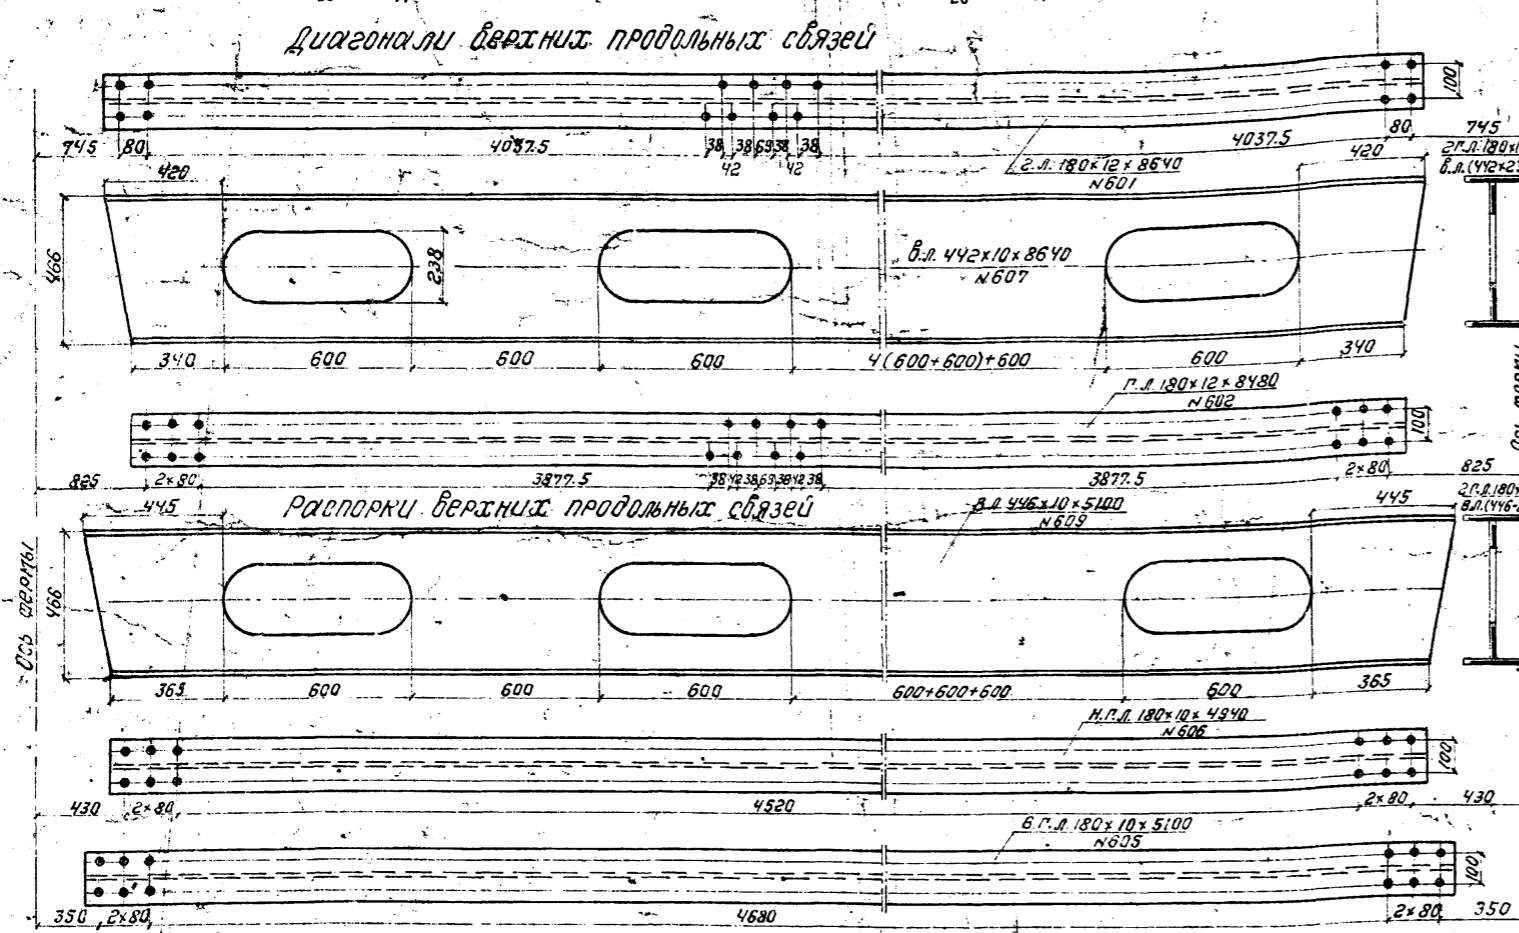 Диагонали верхних продольных связей
100
745 80 4037.5 38 38 69 38 38 4037.5 80 745
42 42
2.Л. 180×12×8640
N601
420 420
2Г.Л.180×1
В.Л.(442×2
466
238
В.Л. 442×10×8640
N607
340 600 600 600 4(600+600)+600 600 340
Г.Л. 180×12×8480
N602
100
825 2×80 3877.5 38 42 38 69 38 42 38 3877.5 2×80 825
Распорки верхних продольных связей
445 445
В.Л. 446×10×5100
N609
2Г.Л.180×
В.Л.(446-
Ось фермы
466
365 600 600 600 600+600+600 600 365
Н.Г.Л. 180×10×4940
N606
100
430 2×80 4520 2×80 430
В.Г.Л. 180×10×5100
N605
100
350 2×80 4680 2×80 350